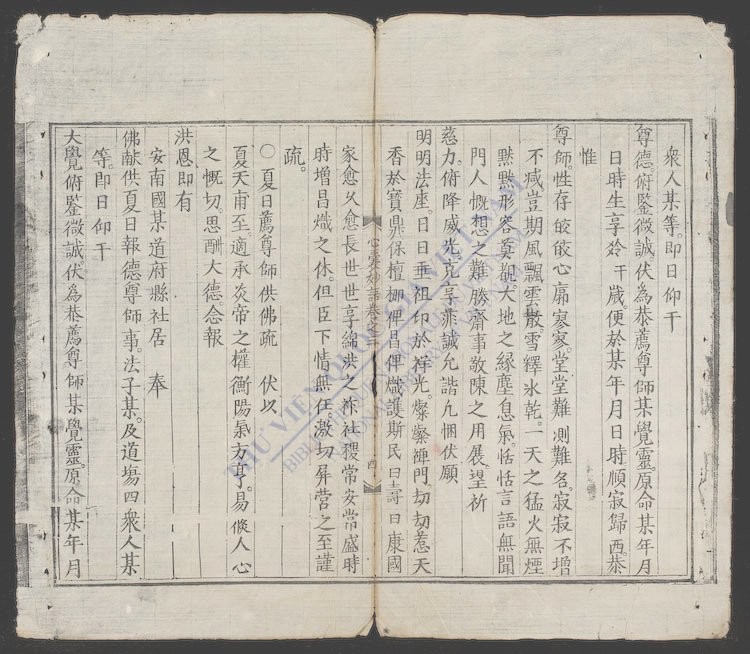 衆人某等。即日仰干
尊德。俯鑒微誠。伏為恭薦尊師某覺靈。原命某年月
日時生享齡干歲便於某年月日時順寂歸西。恭
惟
尊師。性存皎皎。心扃寥寥。堂堂難測難名。寂寂不增
不减。豈期風飄雲散。雪繹氷乾。一天之猛火無煙
黙黙形容奚覩。大地之緣塵息氣。恬恬言語無聞
門人慨想之難勝。齋事敬陳之用展。望祈
慈力。俯降威光。克享菲誠。允諧凡悃。伏願
明明法座。日日垂祖印於祥光。燦燦禪門。刼刼惹天
香於寶鼎。保檀那俾昌俾熾。護斯民曰壽曰康。國
家愈久愈長。世世享綿洪之祚。社稷常安常盛。時
時增昌熾之休。但臣下情無任。激切屏营之至。謹
疏。
○夏日薦尊師供佛疏 伏以
夏天甫至。適承炎帝之權。衡陽氣方亨。易倐人心
之慨切。思酬大德。念報
洪恩。即有
安南國某道府縣社居 奉
佛献供夏日報德尊師事。法子某。及道塲四衆人某
等即日仰干
大覺俯鑒微誠。伏為恭薦尊師某覺靈。原命某年月
卷之二
四
THƯ VIỆN
VIETNAM